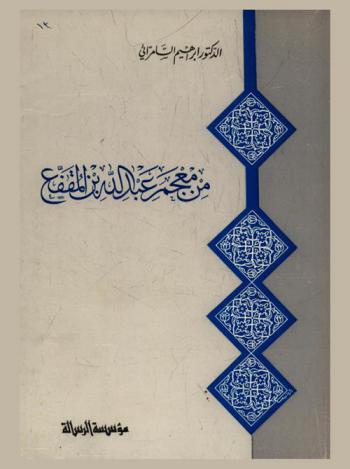 ١٢
الدكتور ابراهيم السامرائي
من معجم عبد الله بن المقفع
مؤسسة الرسالة